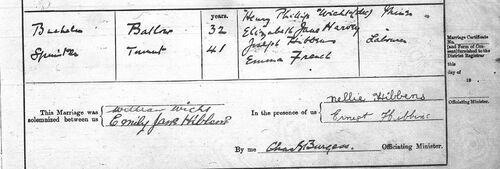 years.
Bachelor 32 Henry Phillip Wicht (dec)
Elizabeth Jane Harvey
Spinster 41 Joseph Hibbens Labourer
Emma French
Marriage Certificate
(and Form of
furnished to the
District Registrar
this
day of
19
Officiating Minister.
This Marriage was
solemnized between us
William Wicht
Emily Jane Hibbens
In the presence of us
Nellie Hibbens
Ernest Hibbins
By me Chas H Burgess. Officiating Minister.